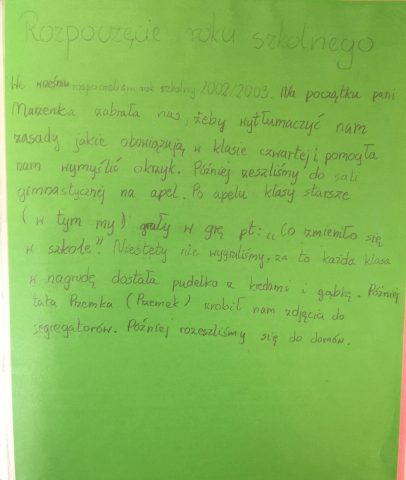 Rozpoczęcie roku szkolnego
We wrześniu rozpoczeliśmy rok szkolny 2002/2003. Na początku pani
Marzenka zabrała nas, żeby wytłumaczyć nam
zasady jakie obowiązują w klasie czwartej i pomogła
nam wymyślić okrzyk. Później zeszliśmy do sali
gimnastycznej na apel. Po apelu klasy starsze
(w tym my) grały w grę pt: „Co zmieniło się
w szkole". Niestety nie wygraliśmy, za to każda klasa
w nagrodę dostała pudełko z kredami i gąbką. Później
tata Przemka (Przemek) zrobił nam zdjęcia do
segregatorów. Później rozeszliśmy się do domów.